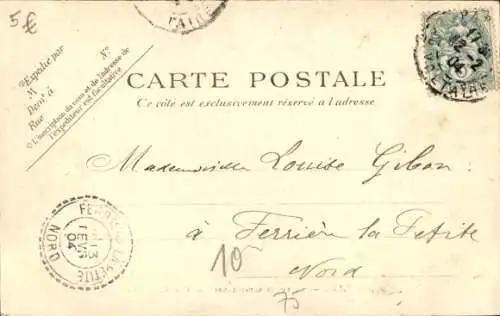 5€
TAIRE
Expédié par
M
Demt à
Rue
N°
L'inscription du nom et de l'adresse de
l'expéditeur est facultative
CARTE POSTALE
Ce côté est exclusivement réservé à l'adresse
PAR
12-2
04
Mademoiselle Louise Gibon
à Ferrière la Petite
Nord
FERRIÈRE-LA-PETITE
13
FEVR
04
NORD
10
75